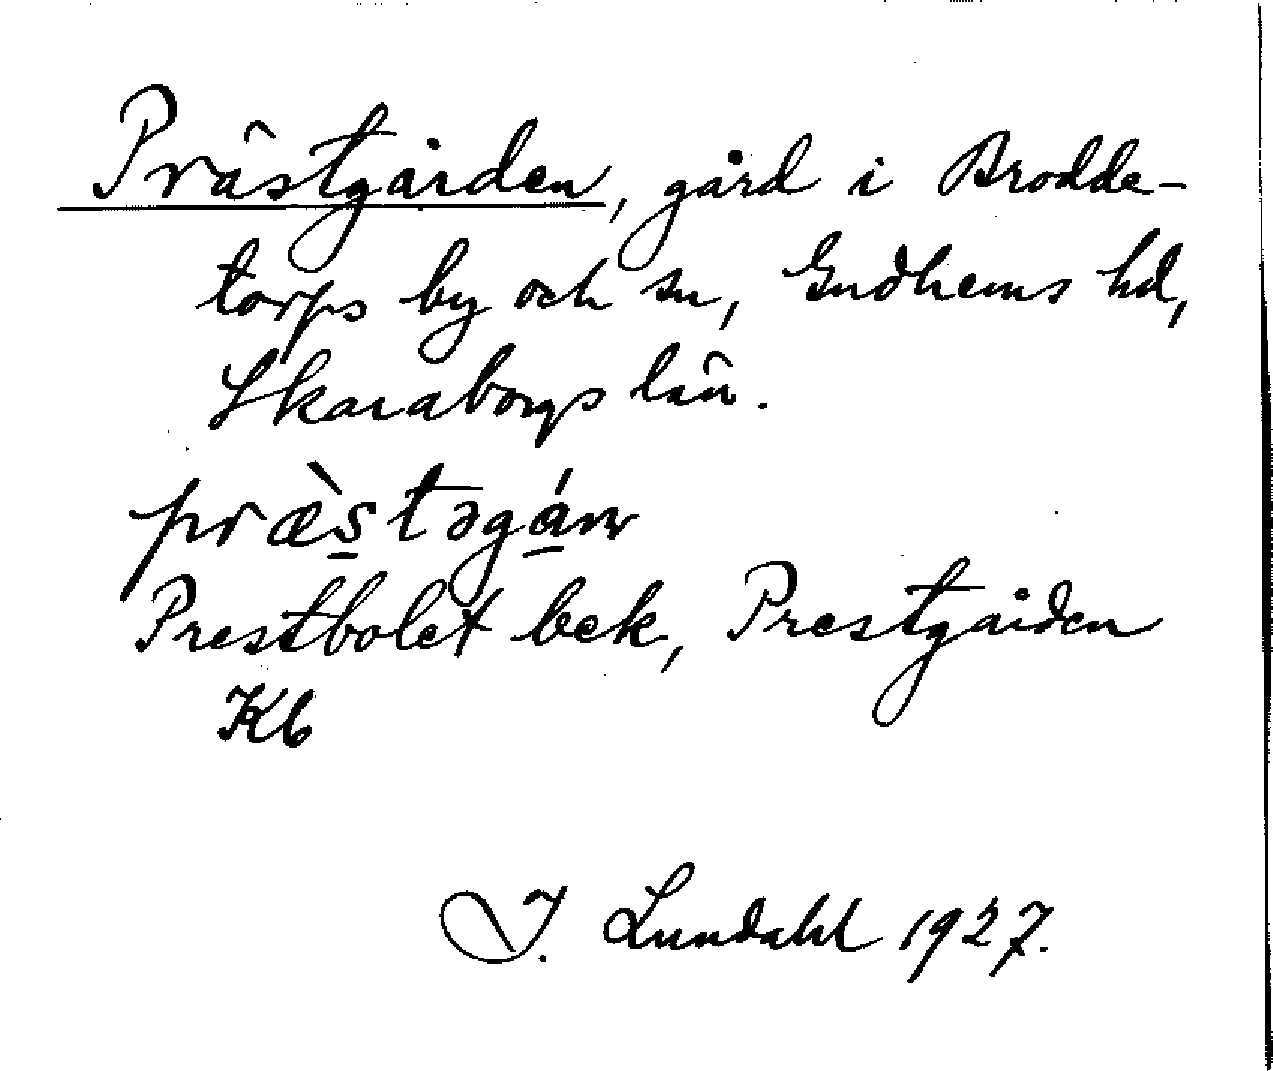 Prästgården, gård i Brodde-
torps by och sn, Gudhems hd,
Skaraborgs län.
præ̀s̲təgá̲rn
Prestbolet bek, Prestgården
Kb
I. Lundahl 1927.